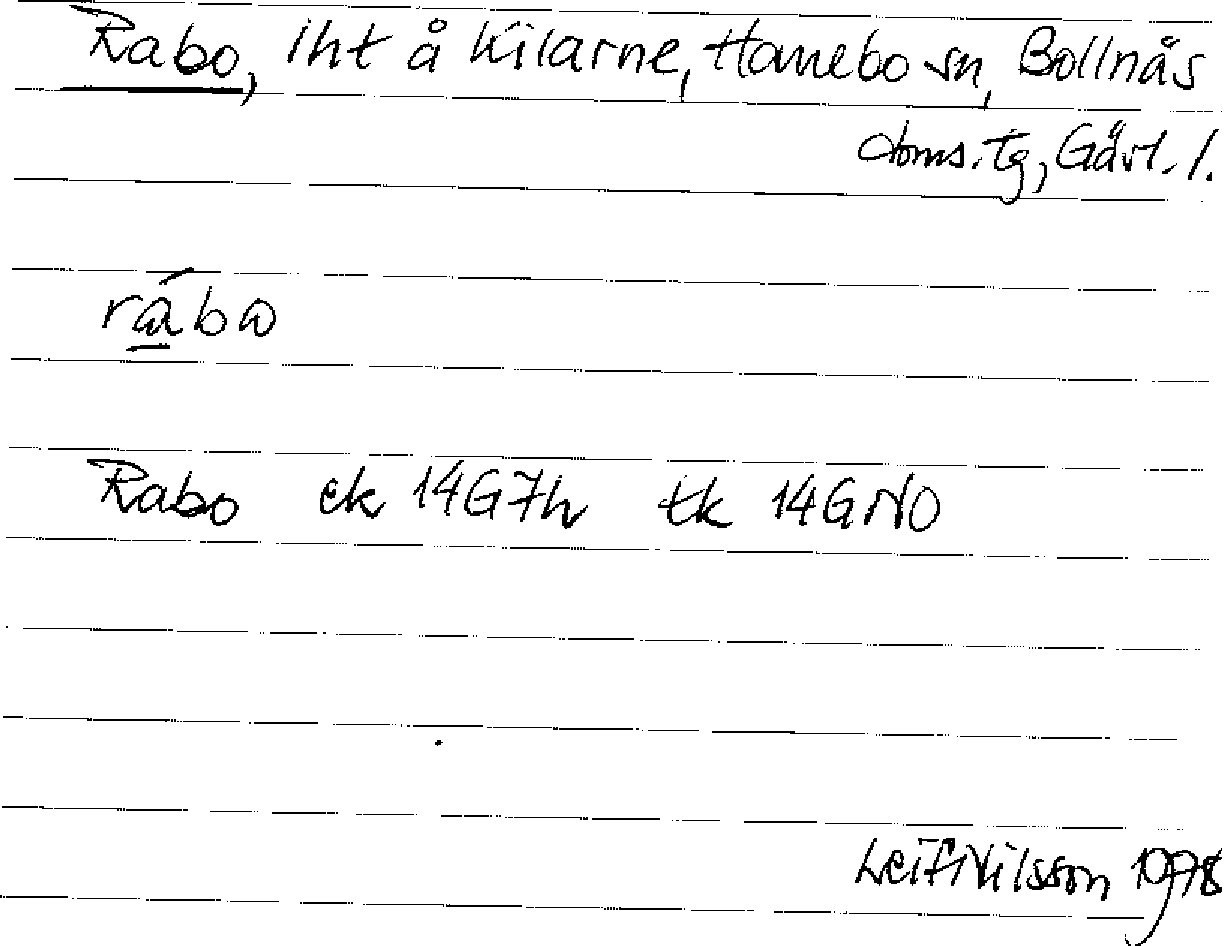 Rabo, lht å Kilarne, Hanebo sn, Bollnäs
doms.tg, Gävl. l.
rábω
Rabo ek 14G7h tk 14GNO
Leif Nilsson 1978